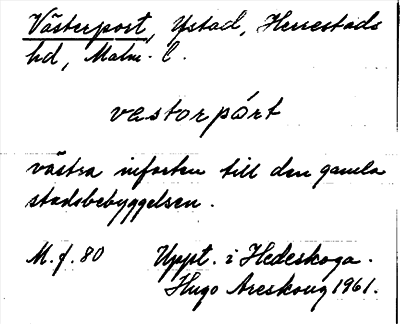 Västerport, Ystad, Herrestads
hd, Malm. l.
vastorpórt
västra infarten till den gamla
stadsbebyggelsen.
M.f. 80 Uppt. i Hedeskoga.
Hugo Areskoug 1961.